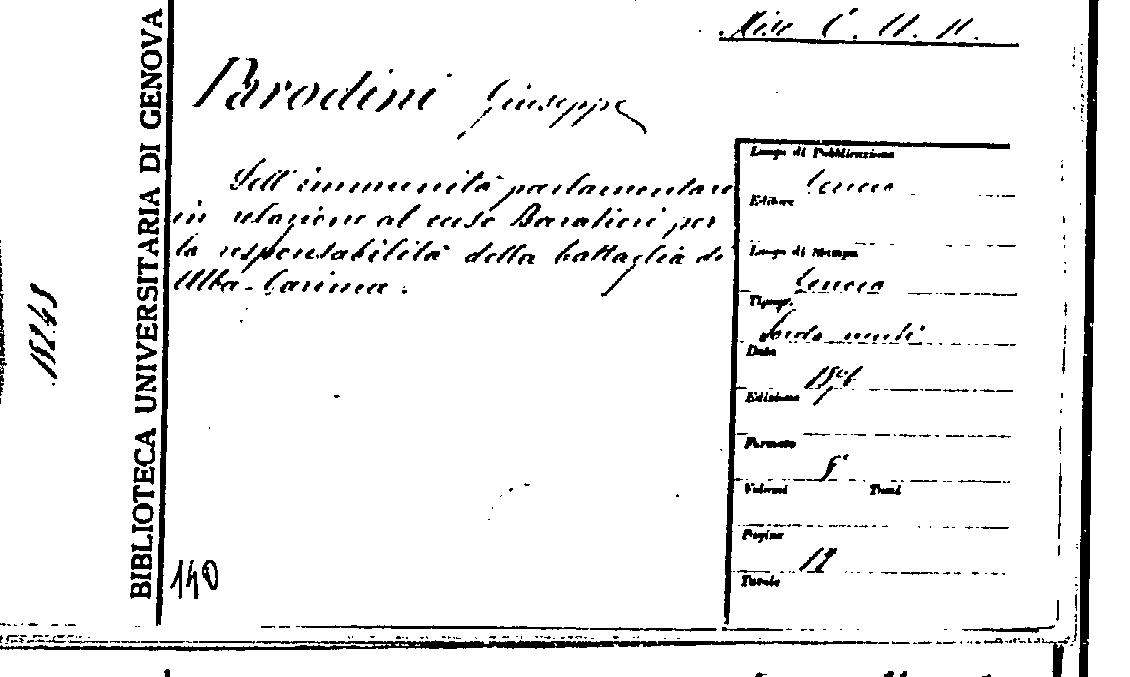 Misc C. 11. 11.
Parodini Giuseppe
Dell'immunità parlamentare
in relazione al caso Baratieri per
la responsabilità della battaglia di
Abba-Garima.
Luogo di Pubblicazione
Genova
Editore
Luogo di stampa
Genova
Tipogr.
Sordo muti
Data
1896
Edizione
Formato
8°
Volumi Tomi
Pagine
Tavole
140
BIBLIOTECA UNIVERSITARIA DI GENOVA
18243